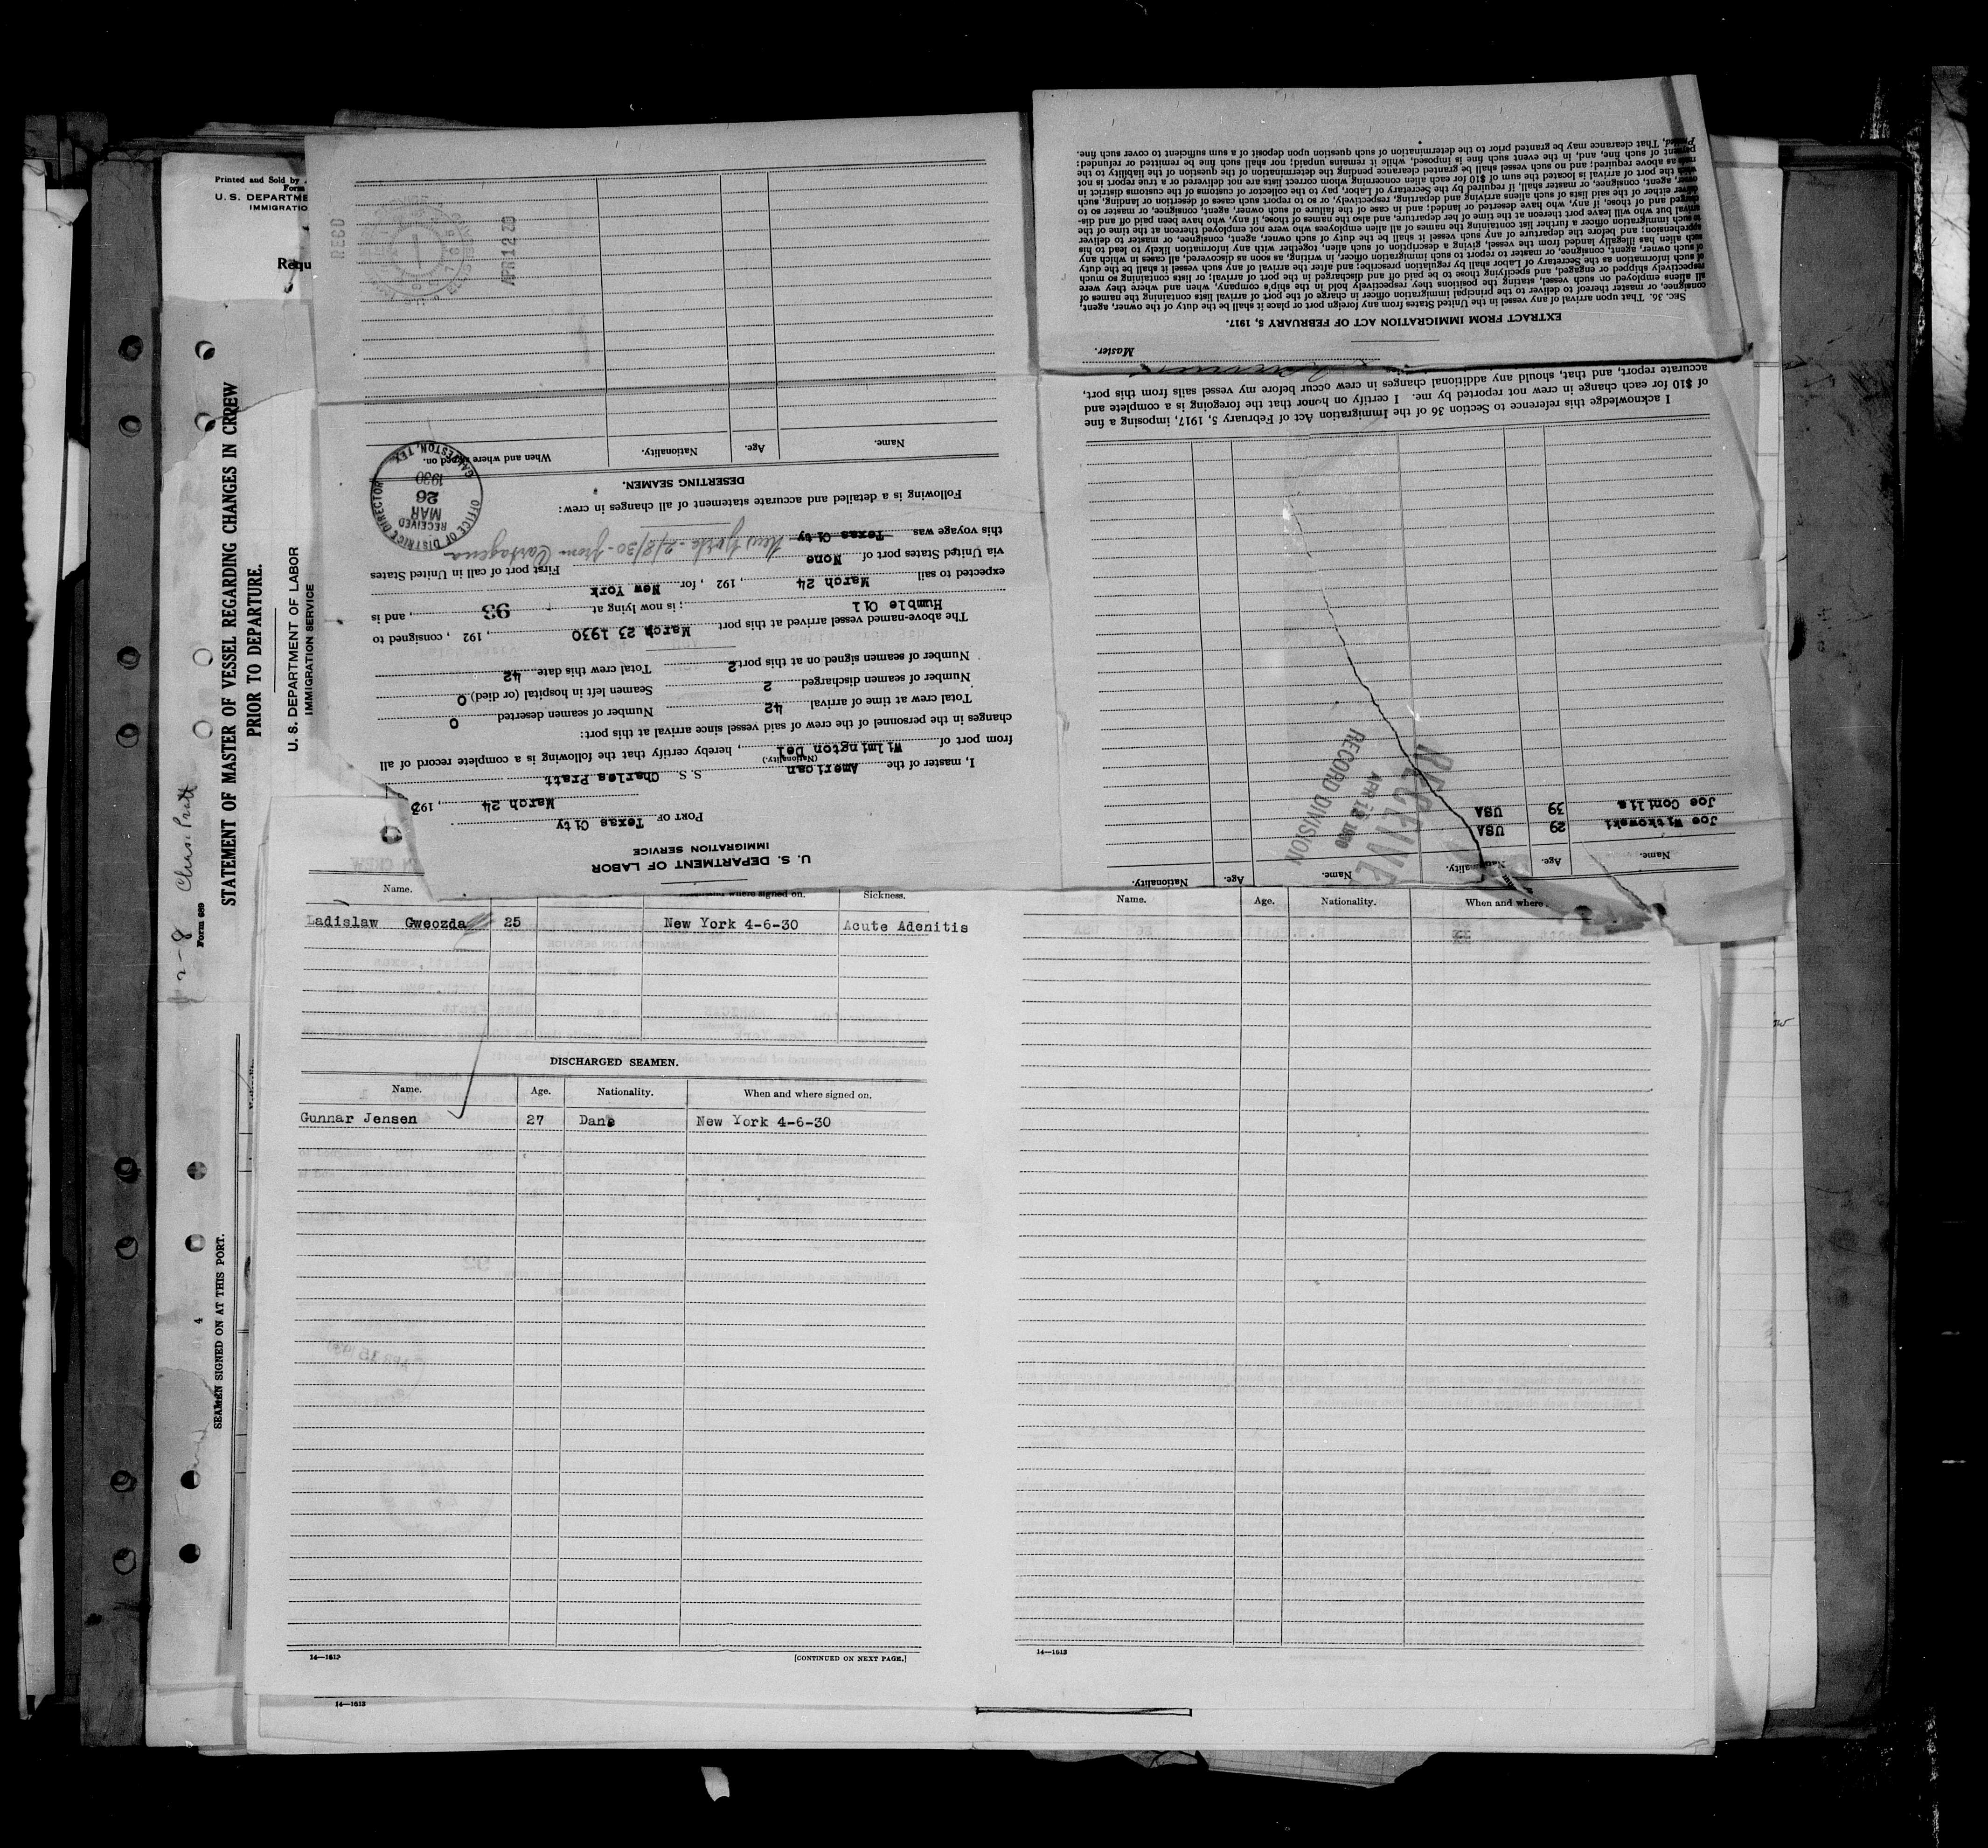 Printed and Sold by
Form
U. S. DEPARTME
IMMIGRATIO
Requ
STATEMENT OF MASTER OF VESSEL REGARDING CHANGES IN CREW
PRIOR TO DEPARTURE.
U. S. DEPARTMENT OF LABOR
IMMIGRATION SERVICE
Form 689
4-2-8 Chas. Pratt
4
SEAMEN SIGNED ON AT THIS PORT.
U. S. DEPARTMENT OF LABOR
IMMIGRATION SERVICE
PORT OF Texas City
March 24, 193
I, master of the American S. S. Charles Pratt
(Nationality.)
from port of Wilmington Del, hereby certify that the following is a complete record of all
changes in the personnel of the crew of said vessel since arrival at this port:
Total crew at time of arrival 42 Number of seamen deserted 0
Number of seamen discharged 2 Seamen left in hospital (or died) 0
Number of seamen signed on at this port 2 Total crew this date 42
The above-named vessel arrived at this port March 23 1930, 192 , consigned to
Humble Oil; is now lying at, and is
93
expected to sail March 24, 192 , for New York
via United States port of None First port of call in United States
this voyage was Texas City New York - 2/8/30 - from Cartagena
Following is a detailed and accurate statement of all changes in crew:
DESERTING SEAMEN.
Name. Age. Nationality. When and where signed on.
OFFICE OF DISTRICT DIRECTOR
RECEIVED
MAR
26
1930
GALVESTON, TEX.
APR 12 30
RECD
Name. Age. Nationality. Name. Age. Nationality.
Joe Witkowski 29 USA
Joe Conlls 39 USA
RECEIVED
APR 12 1930
RECORD DIVISION
I acknowledge this reference to Section 36 of the Immigration Act of February 5, 1917, imposing a fine
of $10 for each change in crew not reported by me. I certify on honor that the foregoing is a complete and
accurate report, and that, should any additional changes in crew occur before my vessel sails from this port,
Master.
EXTRACT FROM IMMIGRATION ACT OF FEBRUARY 5, 1917.
SEC. 36. That upon arrival of any vessel in the United States from any foreign port or place it shall be the duty of the owner, agent,
consignee, or master thereof to deliver to the principal immigration officer in charge of the port of arrival lists containing the names of
all aliens employed on such vessel, stating the positions they respectively hold in the ship's company, when and where they were
respectively shipped or engaged, and specifying those to be paid off and discharged in the port of arrival; or lists containing so much
of such information as the Secretary of Labor shall by regulation prescribe; and after the arrival of any such vessel it shall be the duty
of such owner, agent, consignee, or master to report to such immigration officer, in writing, as soon as discovered, all cases in which any
such alien has illegally landed from the vessel, giving a description of such alien, together with any information likely to lead to his
apprehension; and before the departure of any such vessel it shall be the duty of such owner, agent, consignee, or master to deliver
to such immigration officer a further list containing the names of all alien employees who were not employed thereon at the time of the
arrival but who will leave port thereon at the time of her departure, and also the names of those, if any, who have been paid off and dis-
charged and of those, if any, who have deserted or landed; and in case of the failure of such owner, agent, consignee, or master so to
deliver either of the said lists of such aliens arriving and departing, respectively, or so to report such cases of desertion or landing, such
owner, agent, consignee, or master, shall, if required by the Secretary of Labor, pay to the collector of customs of the customs district in
which the port of arrival is located the sum of $10 for each alien concerning whom correct lists are not delivered or a true report is not
made as above required; and no such vessel shall be granted clearance pending the determination of the question of the liability to the
payment of such fine, and, in the event such fine is imposed, while it remains unpaid; nor shall such fine be remitted or refunded:
Provided, That clearance may be granted prior to the determination of such question upon deposit of a sum sufficient to cover such fine.
Name. where signed on. Sickness.
Ladislaw Gweozda 25 New York 4-6-30 Acute Adenitis
DISCHARGED SEAMEN.
Name. Age. Nationality. When and where signed on.
Gunnar Jensen 27 Dane New York 4-6-30
14—1613 [CONTINUED ON NEXT PAGE.]
14—1613
Name. Age. Nationality. When and where
14—1613